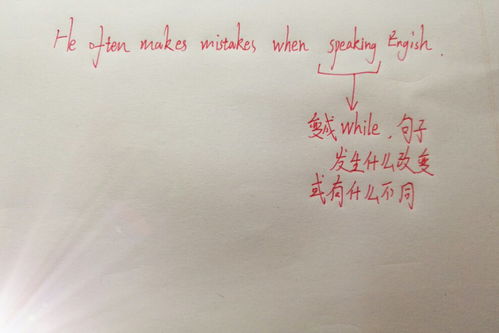 He often makes mistakes when speaking Engish.
变成while，句子
发生什么改变
或有什么不同